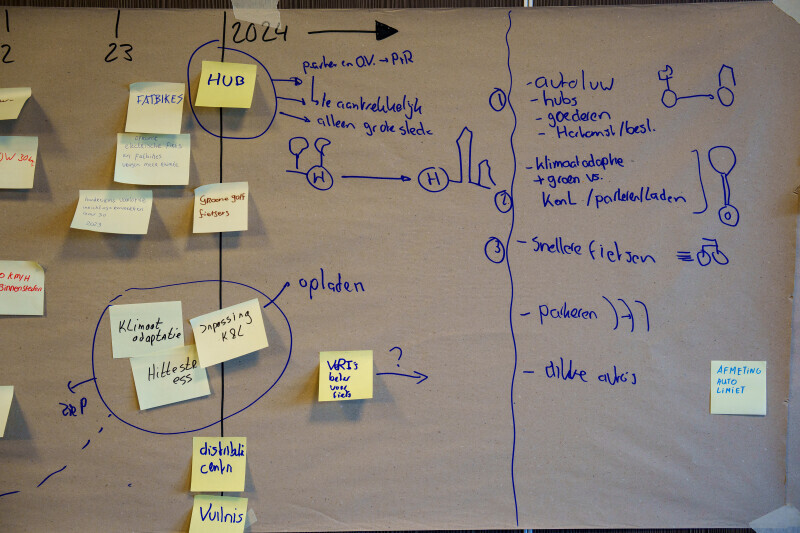 2
23
2024
HUB
parkeren O.V. → P+R
↳ te aantrekkelijk
alleen grote steden
FATBIKES
elektrische fiets
vs fatbikes
H
H
Groene golf
fietsers
OW 30
KM/H
Binnensteden
opladen
Klimaat
adaptatie
Inpassing
K&L
Hittestr
ess
VRI's
beter
voor
fiets
?
distributie
centra
Vuilnis
①
- autoluw
- hubs
- goederen
- Herkomst/best.
②
- klimaatadaptie
+ groen vs.
K en L /parkeren/laden
③
- snellere fietsen
- parkeren
- dikke auto's
AFMETING
AUTO
LIMIET